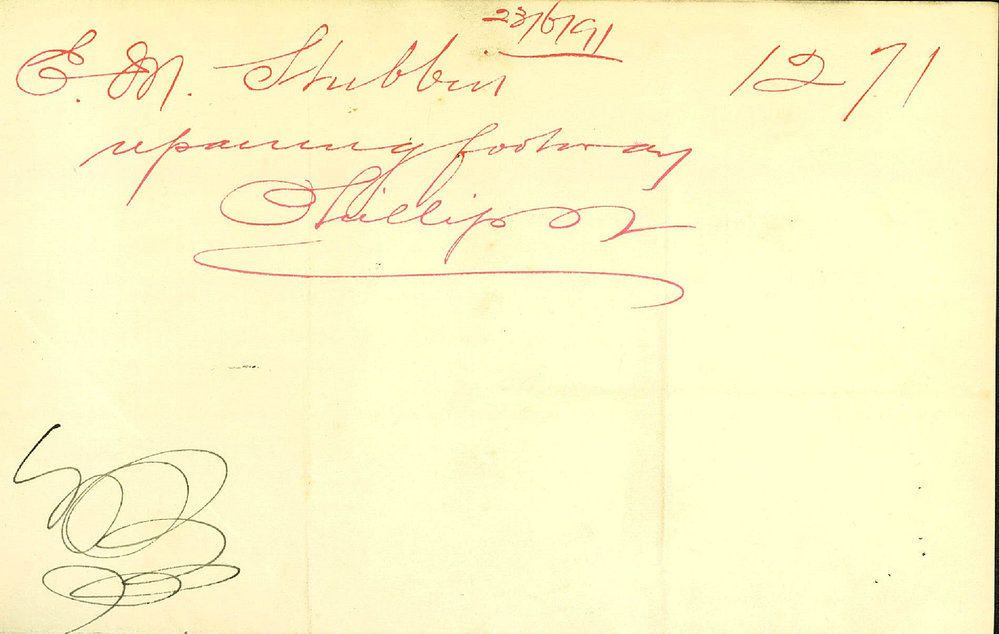 23/6/91
E. M. Stubbin 1271
repairing footway
Phillip St